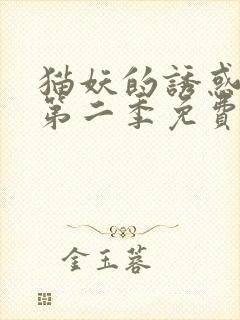 猫妖的誘惑
第二季免費
金玉蓉